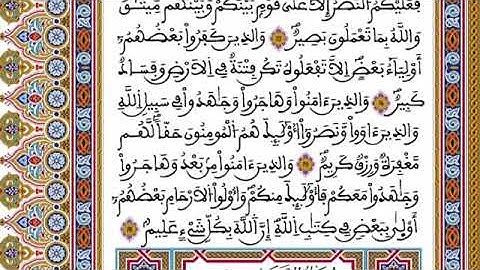 فَعَلَيْكُمُ النَّصْرُ إِلَّا عَلَىٰ قَوْمٍ بَيْنَكُمْ وَبَيْنَهُم مِّيثَٰقٌ
وَاللَّهُ بِمَا تَعْمَلُونَ بَصِيرٌ وَالذِينَ كَفَرُواْ بَعْضُهُمُۥٓ
أَوْلِيَآءُ بَعْضٍ اِلَّا تَفْعَلُوهُ تَكُن فِتْنَةٌ فِے اِلَارْضِ وَفَسَادٌ
كَبِيرٌ وَالذِينَ ءَامَنُواْ وَهَاجَرُواْ وَجَٰهَدُواْ فِے سَبِيلِ اِللَّهِ
وَالذِينَ ءَاوَواْ وَّنَصَرُوٓاْ أُوْلَٰٓئِكَ هُمُ اُلْمُومِنُونَ حَقّاٗ لَّهُم
مَّغْفِرَةٌ وَرِزْقٌ كَرِيمٌ وَالذِينَ ءَامَنُواْ مِنۢ بَعْدُ وَهَاجَرُواْ
وَجَٰهَدُواْ مَعَكُمْ فَأُوْلَٰٓئِكَ مِنكُمْ وَأُوْلُواْ اُلَارْحَامِ بَعْضُهُمُۥٓ
أَوْلَىٰ بِبَعْضٍ فِے كِتَٰبِ اِللَّهِ إِنَّ اَللَّهَ بِكُلِّ شَےْءٍ عَلِيمٌ